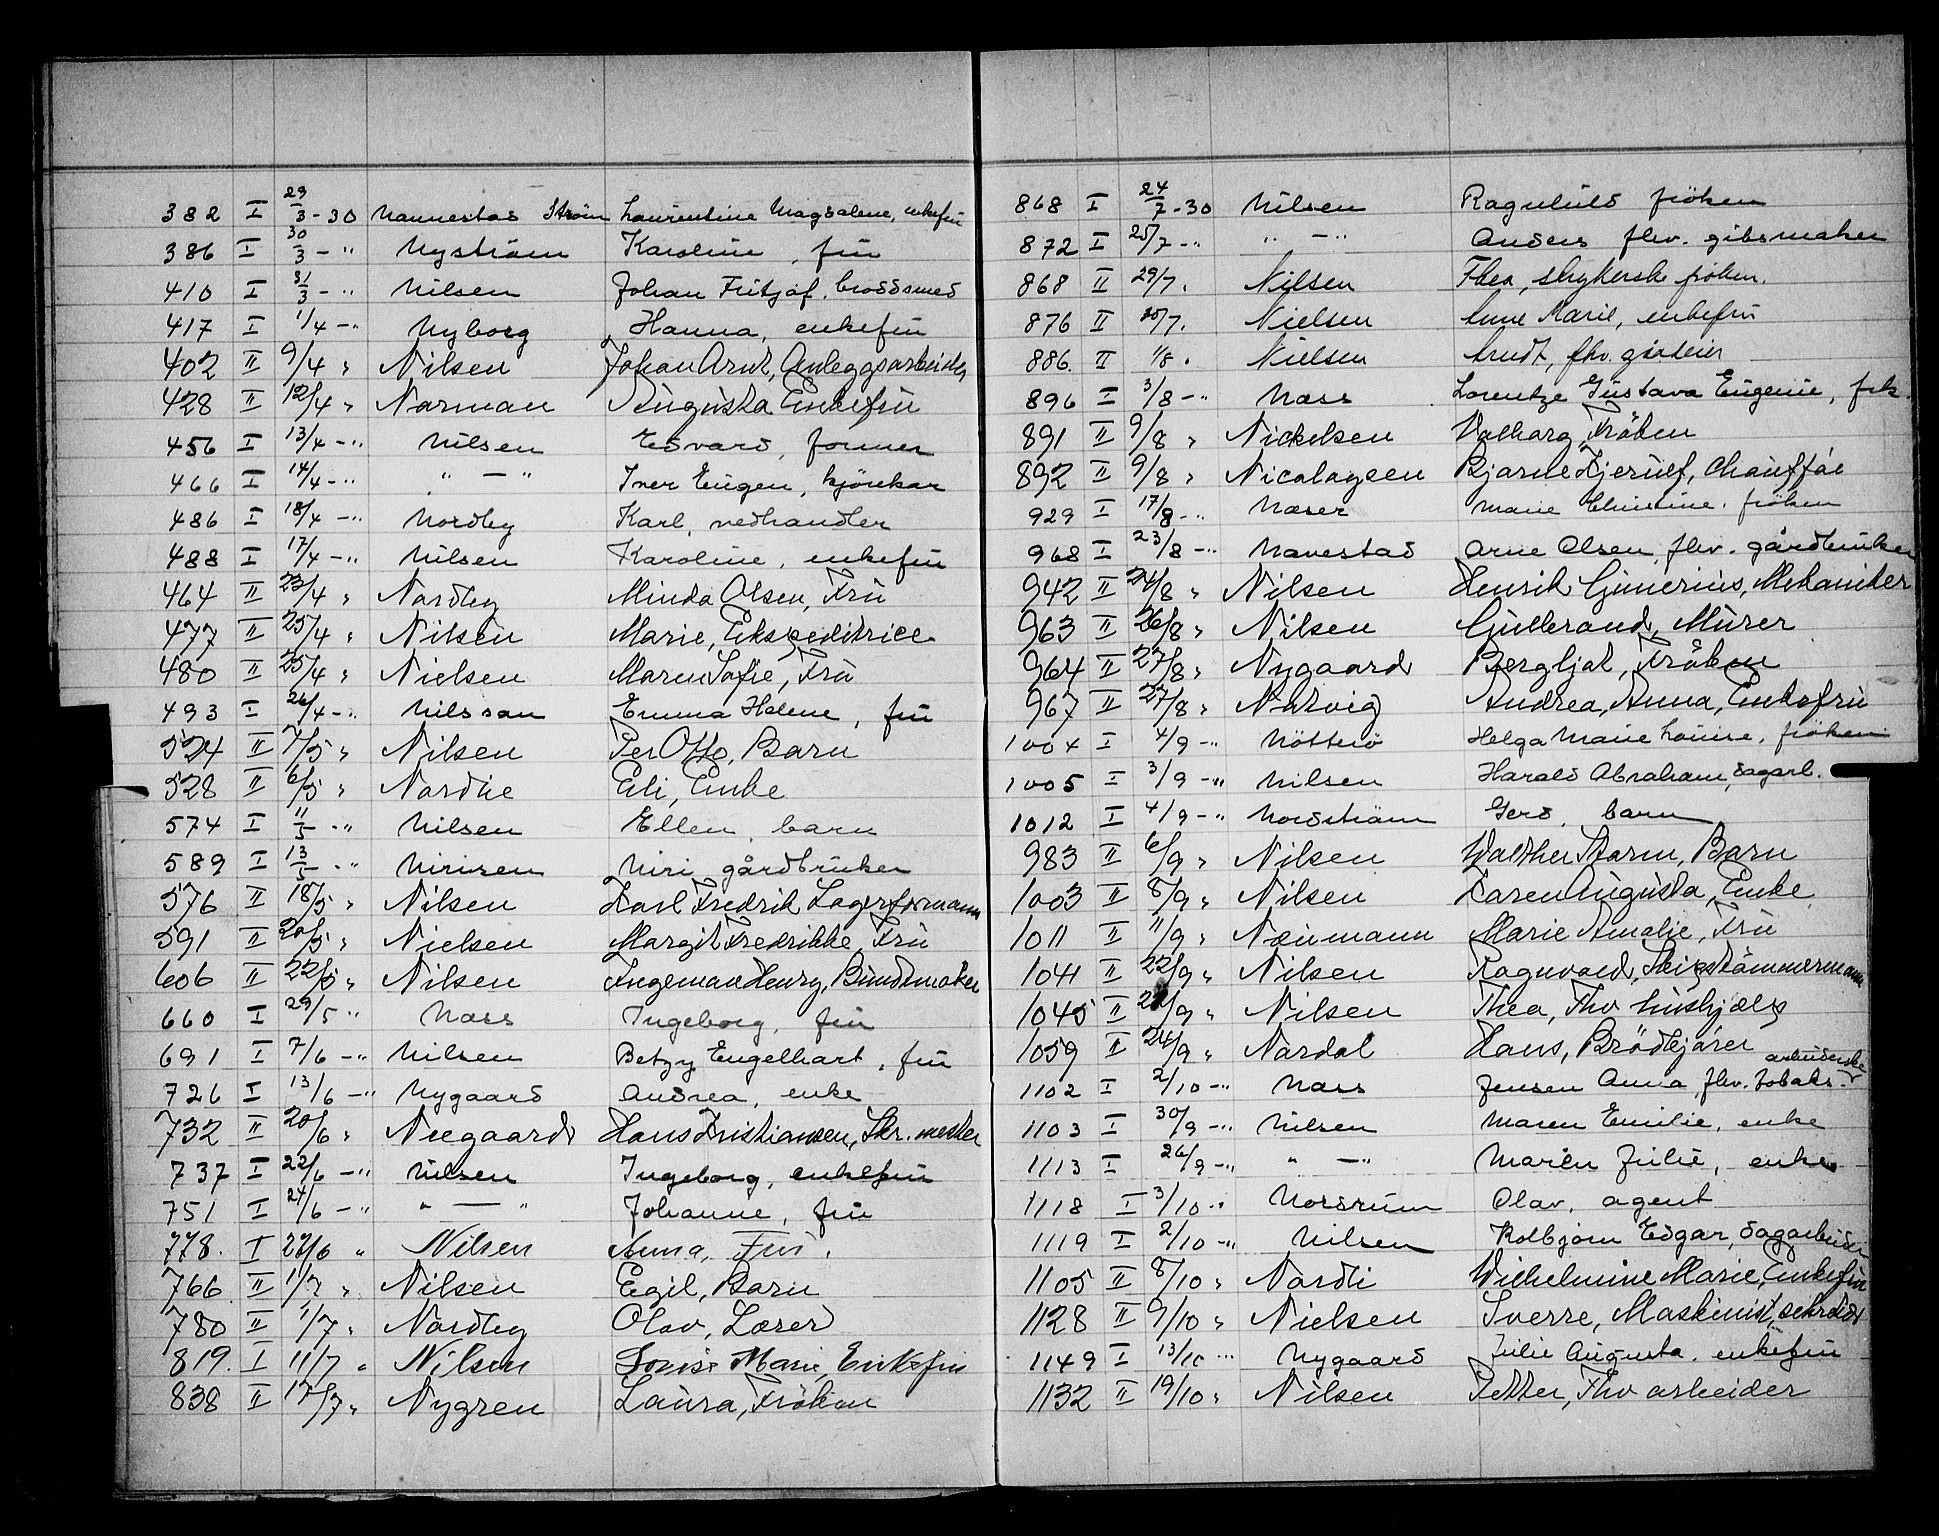 382 I 29/3 - 30 Nannestad Strøm Laurentine Magdalene, enkefru
386 I 30/3 - " Nyström Karoline, fru
410 I 31/3 - " Nilsen Johan Fritjof, brodsmed
417 I 1/4 - " Nyborg Hanna, enkefru
402 II 9/4 " Nilsen Johan Arnt, Anleggsarbeider
428 II 12/4 " Narman Augusta Enkefru
456 I 13/4 - " Nilsen Edvard, former
466 I 14/4 - " " — " Iver Eugen, kjörekar
486 I 18/4 - " Nordby Karl, vedhandler
488 I 17/4 - " Nilsen Karoline, enkefru
464 II 23/4 " Nordby Minda Olsen, Fru
477 II 25/4 " Nilsen Marie, Ekspeditrice
480 II 25/4 " Nielsen Maren Sofie, Fru
493 I 26/4 - " Nilsson Emma Helene, fru
524 II 7/5 " Nilsen Per Otto, Barn
528 II 6/5 " Nordlie Eli, Enke
574 I 11/5 - " Nilsen Ellen, barn
589 I 13/5 - " Nirisen Niri gårdbruker
576 II 18/5 " Nilsen Karl Fredrik Lagerformann
591 II 20/5 " Nielsen Margit Fredrikke, Fru
606 II 22/5 " Nilsen Ingeman Henry, Buntmaker
660 I 29/5 " Nass Ingeborg, fru
691 I 7/6 - " Nilsen Betzy Engelhart, fru
726 I 13/6 - " Nygaard Andrea, enke
732 II 20/6 " Neegaard Hans Kristiansen, Skr.mester
737 I 22/6 - " Nilsen Ingeborg, enkefru
751 I 24/6 - " " — " Johanne, fru
778. I 27/6 " Nilsen Anna, Fru.
766 II 1/7 " Nilsen Egil, Barn
780 II 1/7 " Nordby Olav, Lærer
819. I 11/7 " Nilsen Lovise Marie, Enkefru
838 II 17/7 " Nygren Laura, Fröken
868 I 24/7 - 30 Nilsen Ragnhild fröken
872 I 25/7 - " " — " Anders fhv. gibsmaker
868 II 29/7. Nilsen Thea, strykerske fröken.
876 II 30/7. Nielsen Anne Marie, enkefru
886. II 1/8. Nielsen Arndt, fhv. gårdeier
896 I 3/8 - " Nass Lorentze Gustava Eugenie, frk.
891 II 9/8 " Nickelsen Valborg, Fröken
892 II 9/8 " Nicolaysen Bjarne Kjerulf, Chauffør
929 I 17/8 - " Næser Marie Christine, fröken
968 I 23/8 - " Navestad Arne Olsen, fhv. gårdbruker
942 II 24/8 " Nilsen Henrik Gunerius, Mekaniker
963 II 26/8 " Nilsen Gulbrand, Murer
964 II 27/8 " Nygaard Bergljot, Fröken
967 II 27/8 " Natvig Andrea, Anna, Enkefru
1004 I 4/9 - " Nötterö Helga Marie Louise, fröken
1005 I 3/9 - " Nilsen Harald Abraham, sagarb.
1012 I 4/9 - " Nordström Gerd, barn
983 II 6/9 " Nilsen Walther Storm, Barn
1003 II 8/9 " Nilsen Karen Augusta, Enke
1011 II 11/9 " Neumann Marie Amalie, Fru
1041 II 22/9 " Nilsen Ragnvald, Skipstömmermann
1045 II /9 " Nilsen Thea, Fhv hushjælp
1059 II 24/9 " Nardal Hans, Brödkjører
1102 I 2/10 - " Nass Jensen Anna, fhv. tobaks- arbeiderske
1103 I 30/9 - " Nilsen Maren Emilie, enke
1113 I 26/9 - " " — " Maren Julie, enke
1118 I 3/10 - " Nordrum Olav, agent
1119 I 2/10 - " Nilsen Kolbjörn Edgar, sagarbeider
1105 II 8/10 " Nordli Wilhelmine Marie, Enkefru
1128 II 9/10 " Nielsen Sverre, Maskinist,
1149 I 13/10 " Nygaard Julie Augusta, enkefru
1132 II 19/10 " Nilsen Petter, Fhv arbeider